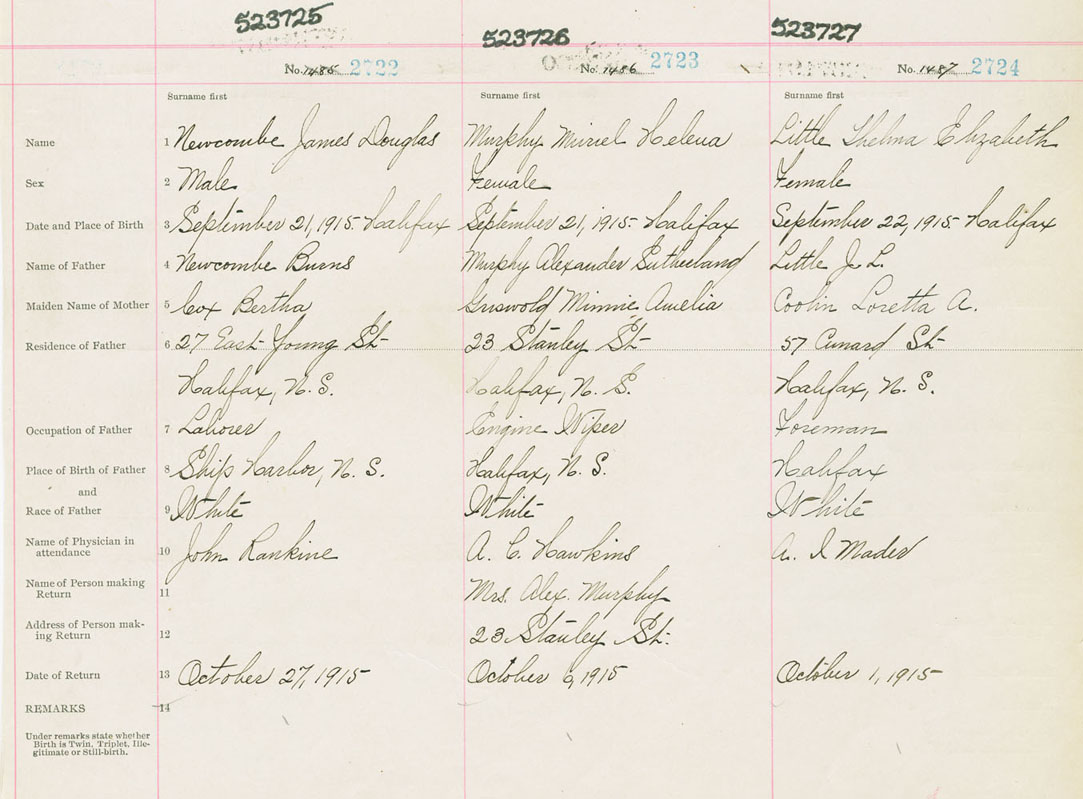 523725 523726 523727
No. 1485 2722 No. 1486 2723 No. 1487 2724
Surname first Surname first Surname first
Name 1 Newcombe James Douglas Murphy Muriel Helena Little Thelma Elizabeth
Sex 2 Male Female Female
Date and Place of Birth 3 September 21, 1915- Halifax September 21, 1915- Halifax September 22, 1915- Halifax
Name of Father 4 Newcombe Burns Murphy Alexander Sutherland Little J. L.
Maiden Name of Mother 5 Cox Bertha Griswold Minnie Amelia Loretta A.
Residence of Father 6 27 East Young St- 23 Stanley St- 57 Cunard St-
Halifax, N. S. Halifax, N. S. Halifax, N. S.
Occupation of Father 7 Laborer Engine Wiper Foreman
Place of Birth of Father 8 Ship Harbor, N. S. Halifax, N. S. Halifax
and
Race of Father 9 White White White
Name of Physician in
attendance 10 John Rankine A. C. Hawkins A. I Mader
Name of Person making
Return 11 Mrs. Alex. Murphy
Address of Person mak-
ing Return 12 23 Stanley St.
Date of Return 13 October 27, 1915- October 6, 1915 October 1, 1915-
REMARKS 14
Under remarks state whether
Birth is Twin, Triplet, Ille-
gitimate or Still-birth.